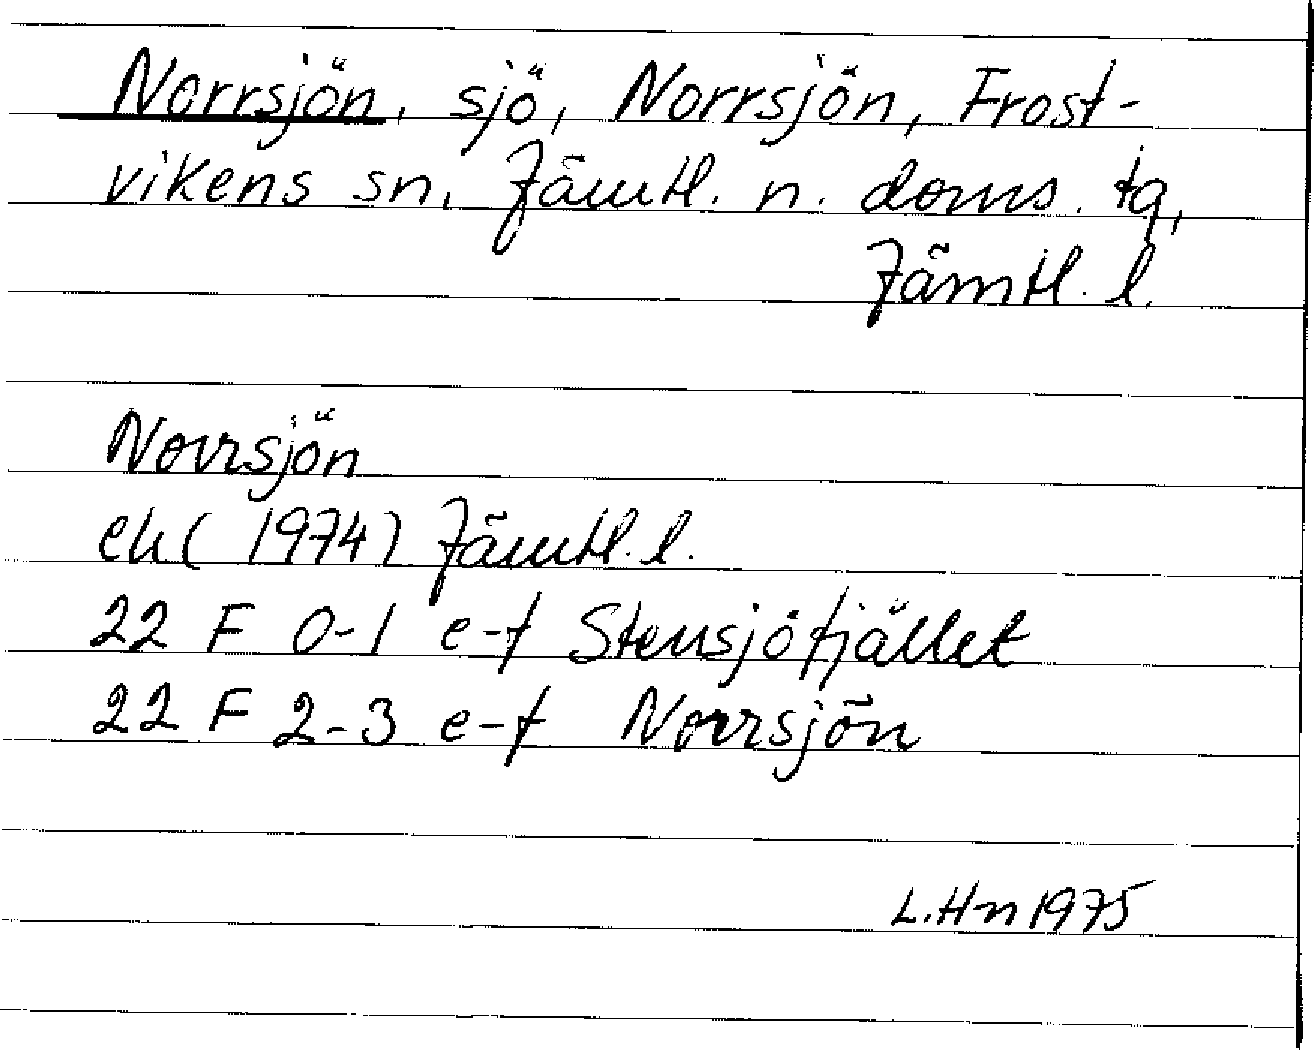 Norrsjön, sjö, Norrsjön, Frost-
vikens sn, Jämtl. n. doms. tg,
Jämtl. l.
Norrsjön
ek (1974) Jämtl. l.
22 F 0-1 e-f Stensjöfjället
22 F 2-3 e-f Norrsjön
L.Hn 1975